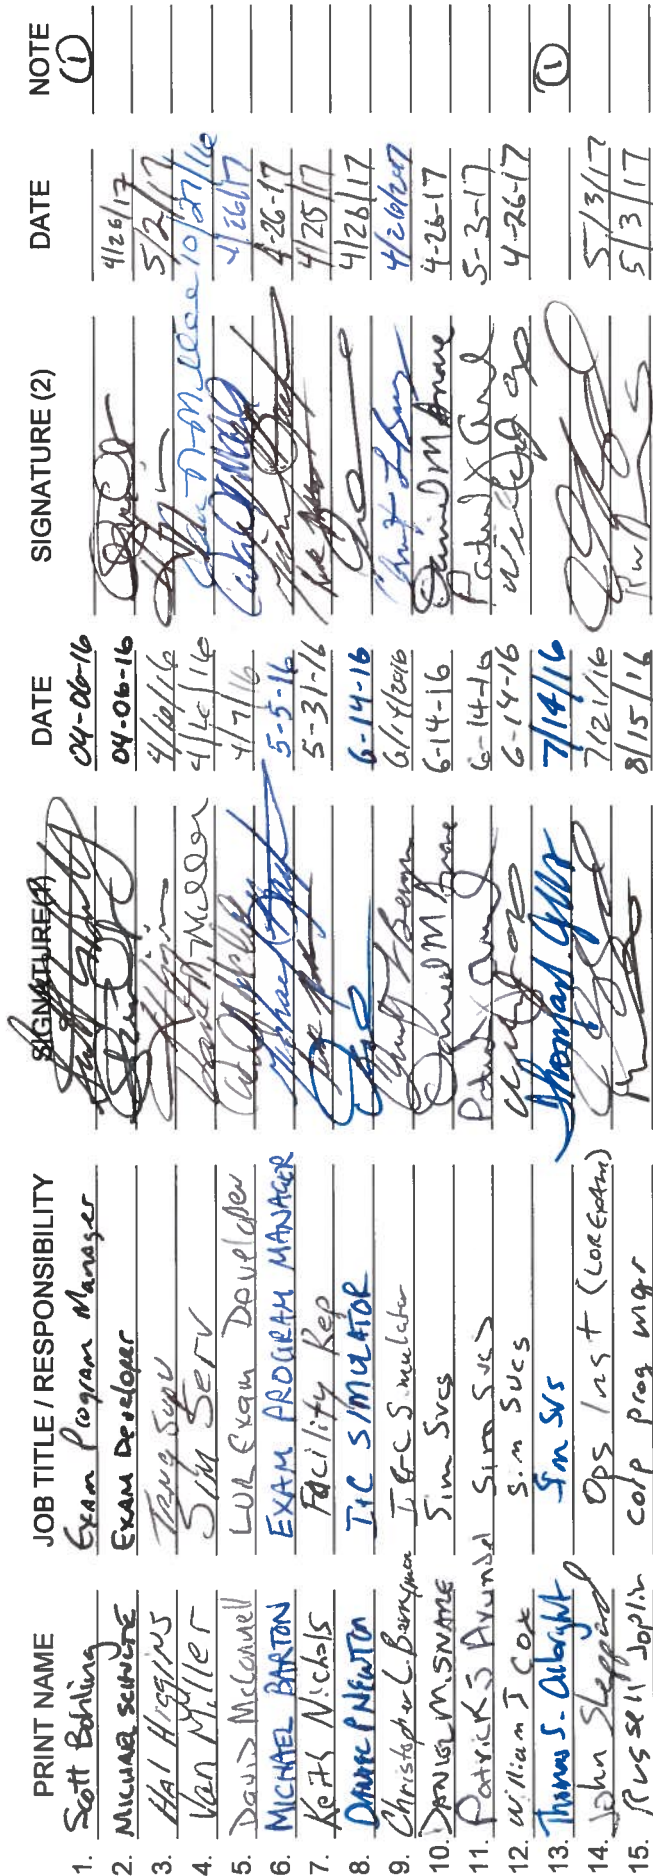 PRINT NAME JOB TITLE / RESPONSIBILITY SIGNATURE (1) DATE SIGNATURE (2) DATE NOTE
1. Scott Bohling Exam Program Manager 04-06-16 (1)
2. MICHAEL SCHULTE EXAM Developer 04-06-16 4/26/17
3. HAl HiggiNS TRNG Supv 4/6/16 5/2/17
4. Van Miller Sim Serv 4/6/16 10/27/16
5. David McConnell LOR Exam Developer 4/7/16 4/26/17
6. MICHAEL BARTON EXAM PROGRAM MANAGER 5-5-16 4-26-17
7. Keith Nichols Facility Rep 5-31-16 4/25/17
8. DANIEL P NEWTON I&C SIMULATOR 6-14-16 4/26/17
9. Christopher L. Berryman I&C Simulator 6/14/2016 4/26/2017
10. DANIEL M. SNARE Sim Svcs Daniel M Snare 6-14-16 Daniel M Snare 4-26-17
11. Patrick J Arundel Sim Svcs 6-14-16 5-3-17
12. William J Cox Sim Svcs 6-14-16 4-26-17
13. Thomas S. Albright Sim Svs 7/14/16 (1)
14. John Sheppard Ops Inst (LOR Exam) 7/21/16 5/3/17
15. Russell Joplin Corp Prog Mgr 8/15/16 5/3/17